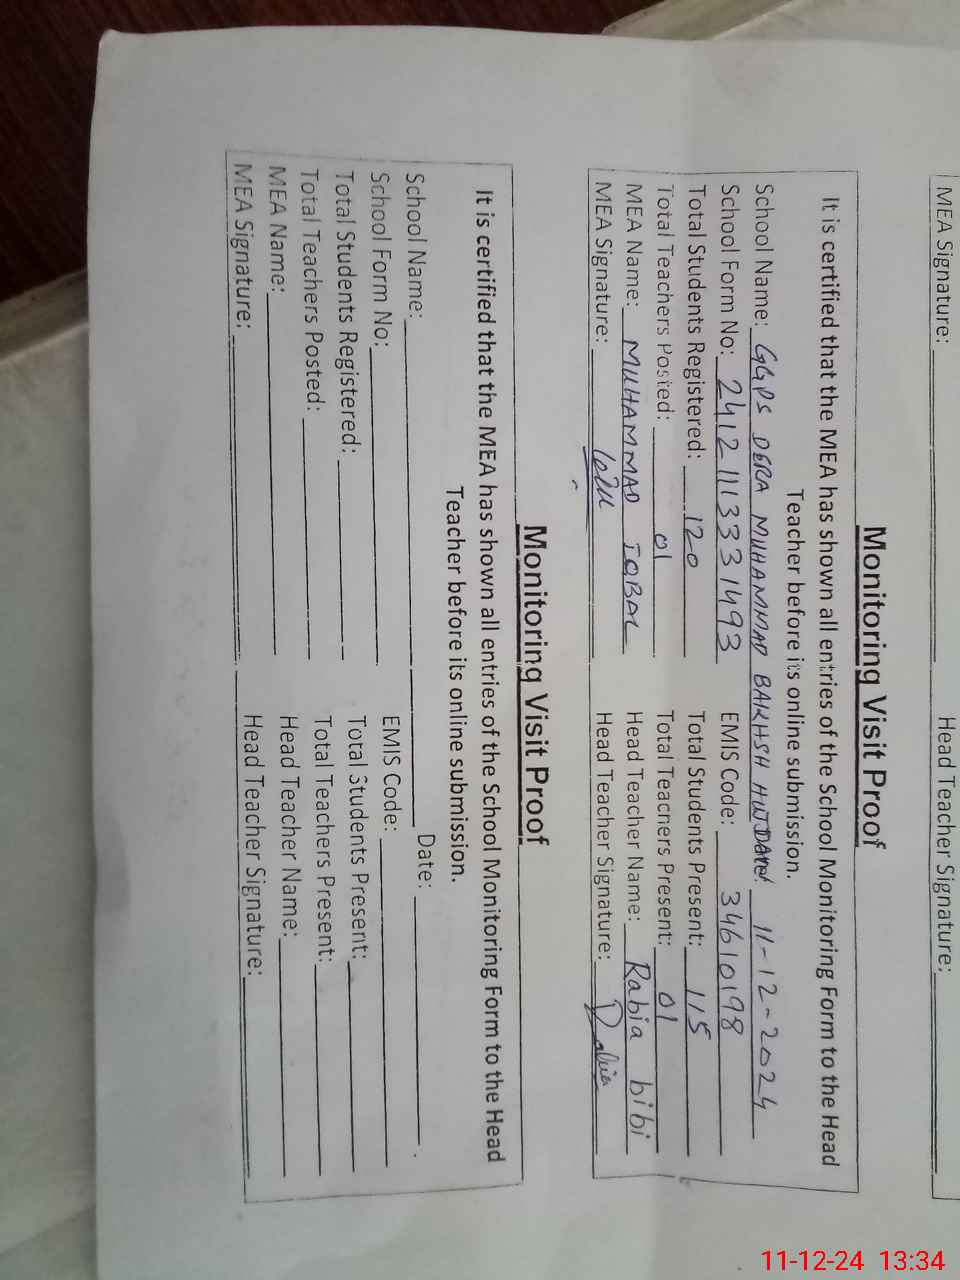 MEA Signature: Head Teacher Signature:
Monitoring Visit Proof
It is certified that the MEA has shown all entries of the School Monitoring Form to the Head
Teacher before its online submission.
School Name: GGPS DERA MUHAMMAD BAKHSH Date: 11-12-2024
School Form No: 24121113331493 EMIS Code: 34610198
Total Students Registered: 120 Total Students Present: 115
Total Teachers Posted: 01 Total Teachers Present: 01
MEA Name: MUHAMMAD IQBAL Head Teacher Name: Rabia bibi
MEA Signature: Head Teacher Signature: Rabia
Monitoring Visit Proof
It is certified that the MEA has shown all entries of the School Monitoring Form to the Head
Teacher before its online submission.
School Name: Date:
School Form No: EMIS Code:
Total Students Registered: Total Students Present:
Total Teachers Posted: Total Teachers Present:
MEA Name: Head Teacher Name:
MEA Signature: Head Teacher Signature:
11-12-24 13:34